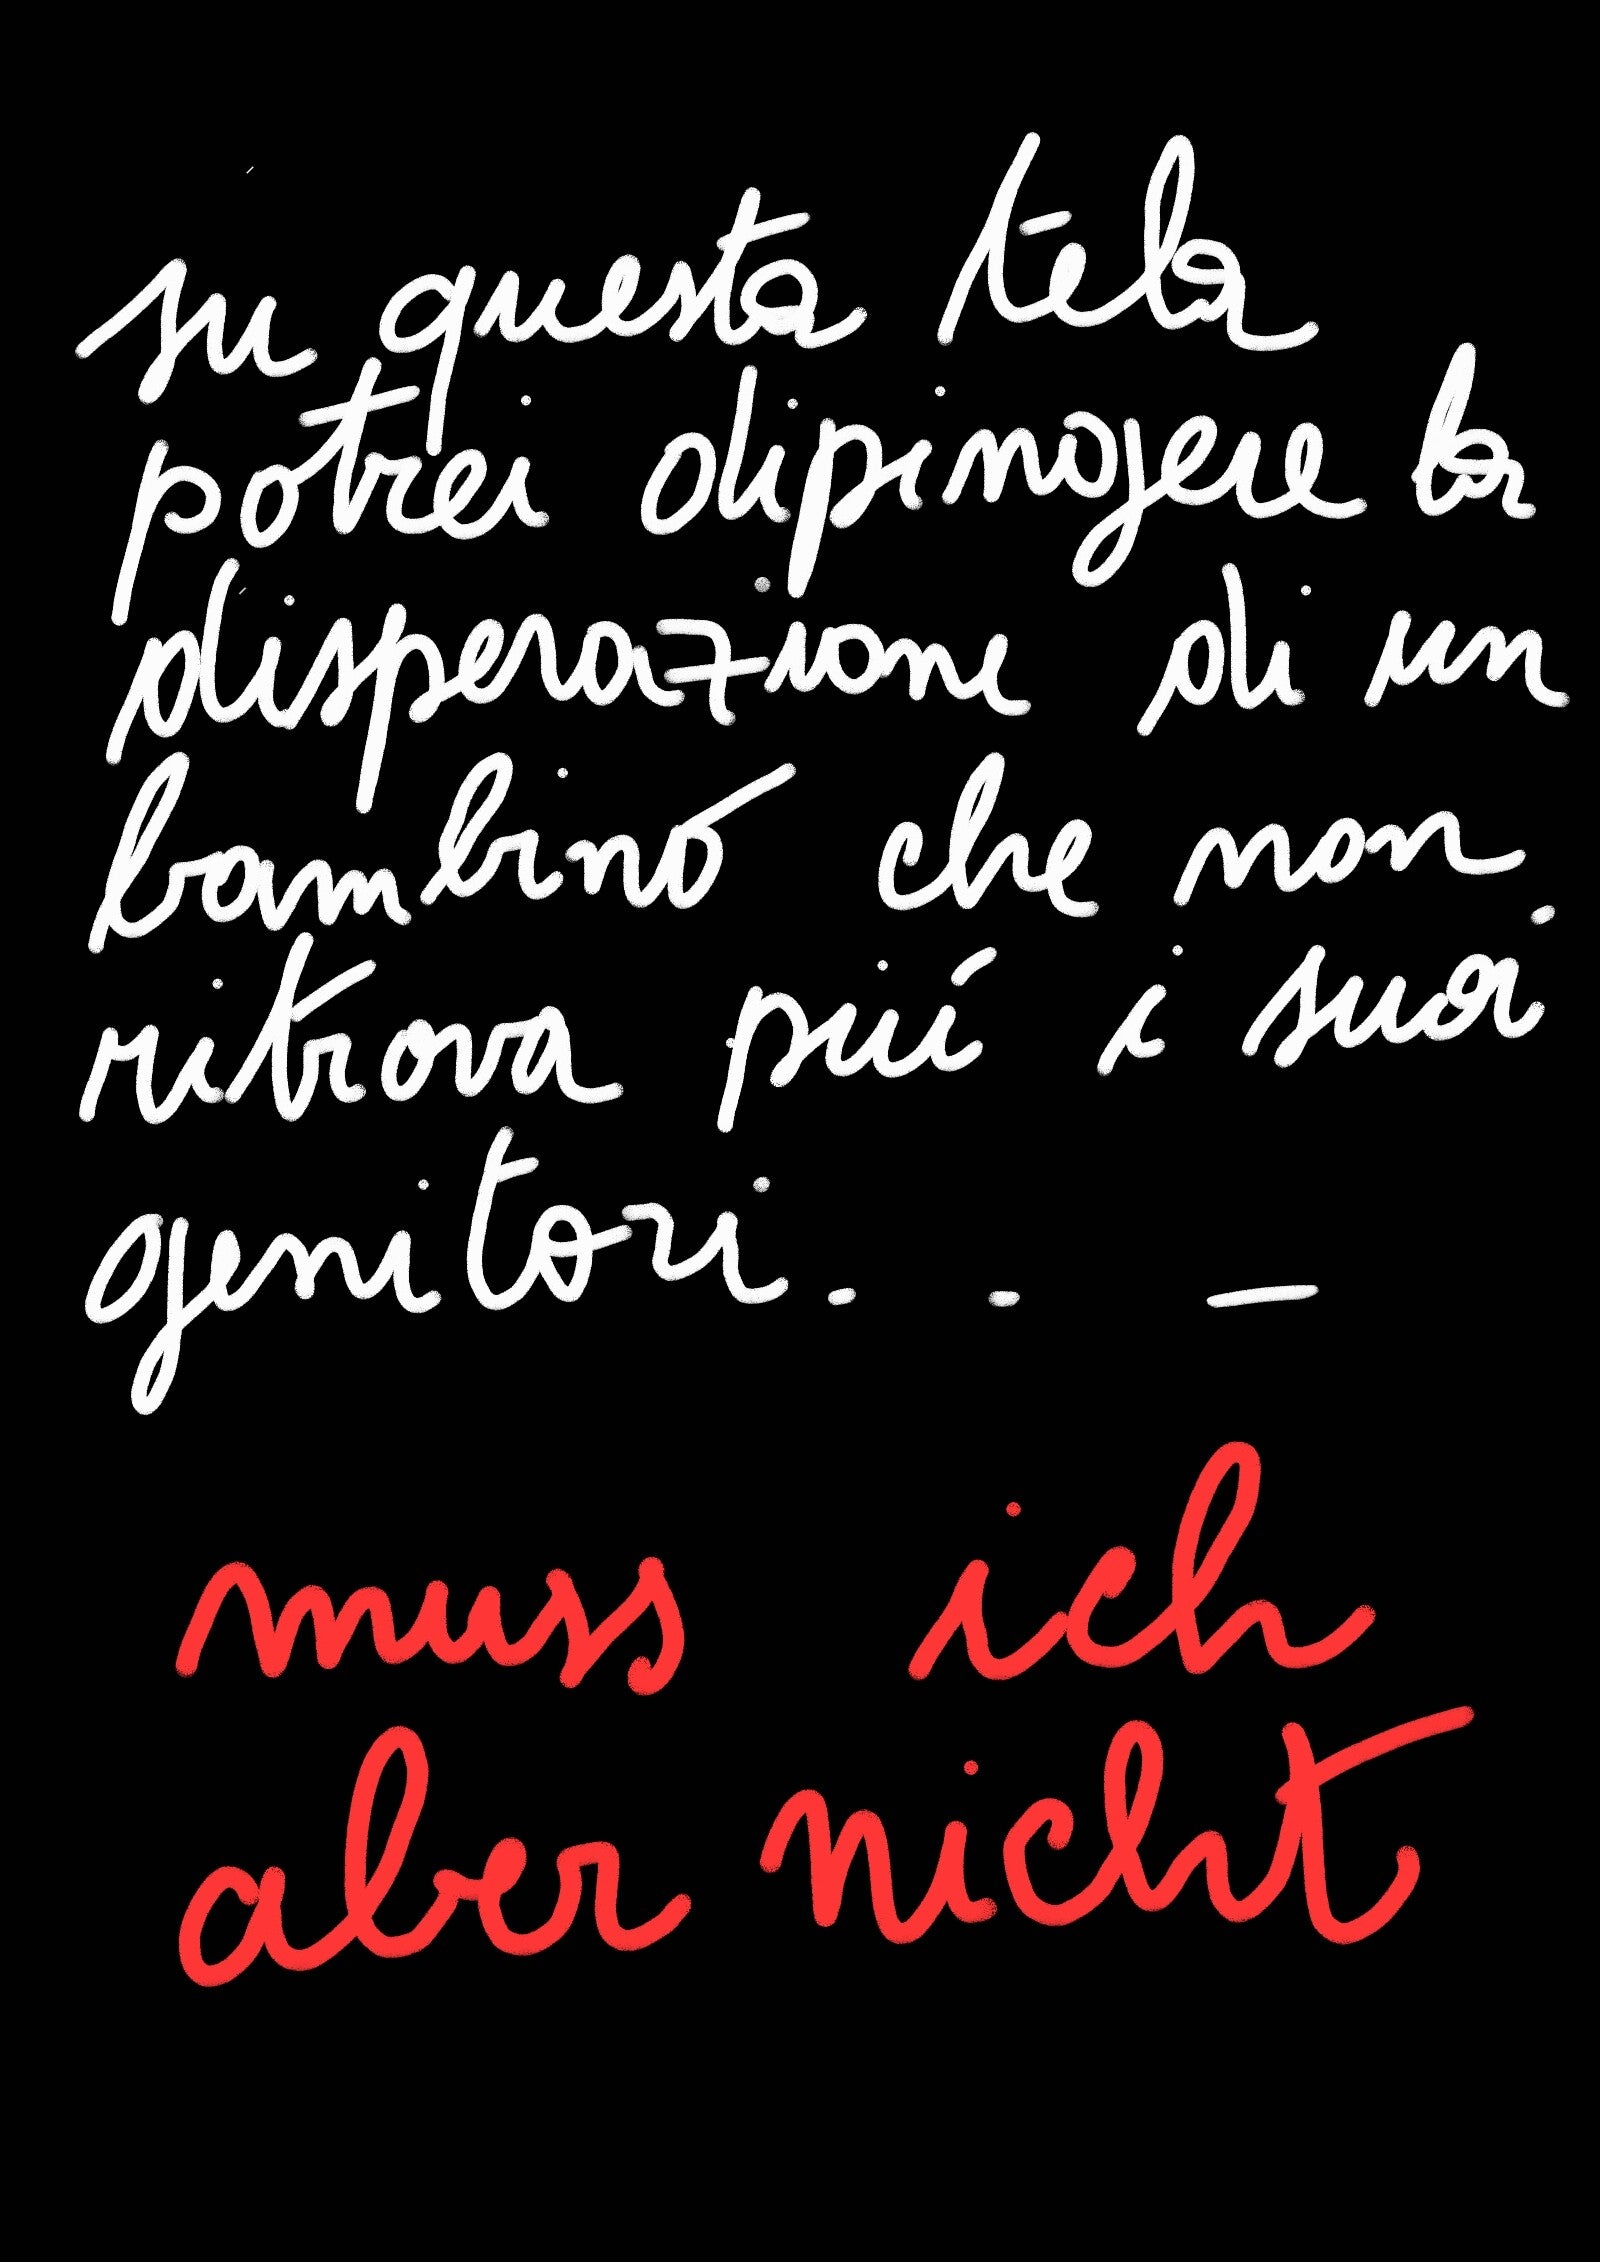 su questa tela
potrei dipingere la
disperazione di un
bambino che non
ritrova più i suoi
genitori. . _
muss ich
aber nicht